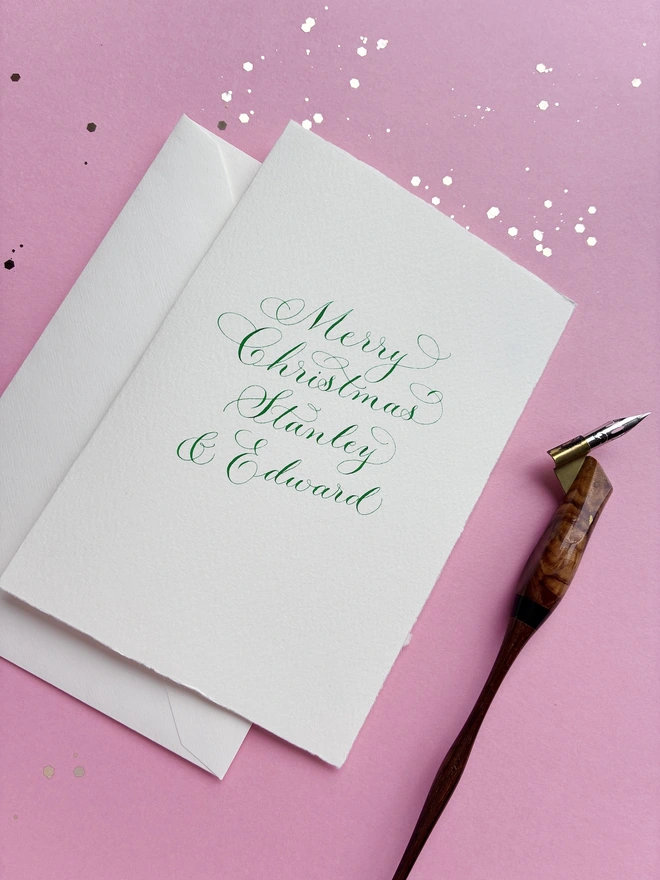 Merry
Christmas
Stanley
& Edward